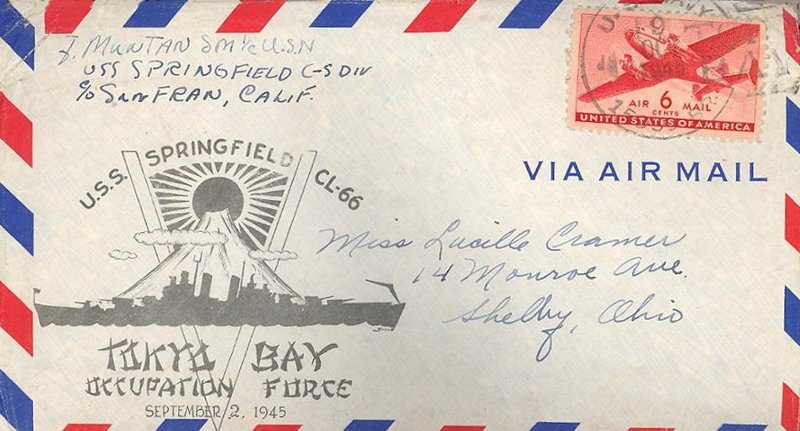 J. MUNTAN SM1/c U.S.N
USS SPRINGFIELD C-S DIV
c/o SAN FRAN, CALIF.
AIR 6 MAIL
CENTS
UNITED STATES OF AMERICA
VIA AIR MAIL
U.S.S. SPRINGFIELD CL-66
Miss Lucille Cramer
14 Monroe Ave.
Shelby, Ohio
TOKYO BAY
OCCUPATION FORCE
SEPTEMBER 2, 1945